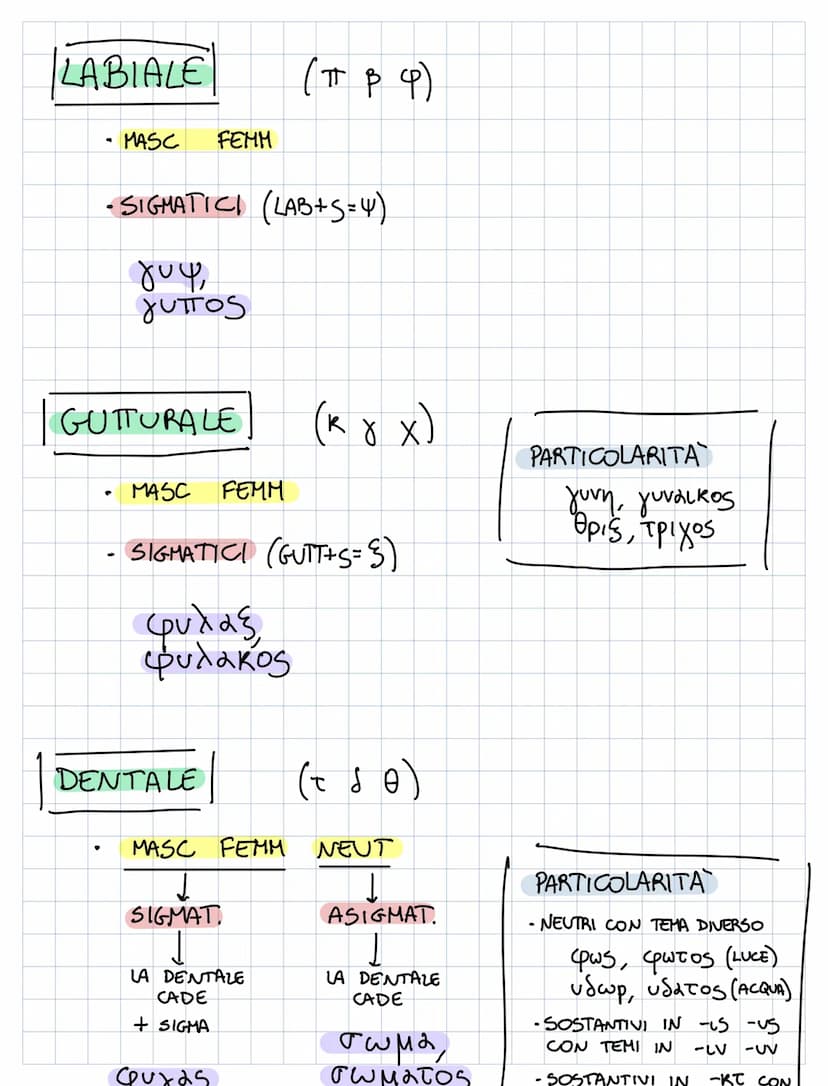 LABIALE (π β φ)
· MASC FEMM
· SIGMATICI (LAB+S=ψ)
γυψ,
γυπος
GUTTURALE (κ γ χ)
· MASC FEMM
- SIGMATICI (GUTT+S=ξ)
φυλαξ,
φυλακος
PARTICOLARITÀ
γυνη, γυναικος
θριξ, τριχος
DENTALE (τ δ θ)
· MASC FEMM NEUT
SIGMAT. ASIGMAT.
LA DENTALE LA DENTALE
CADE CADE
+ SIGMA
σωμα,
σωματος
PARTICOLARITÀ
· NEUTRI CON TEMA DIVERSO
φως, φωτος (LUCE)
υδωρ, υδατος (ACQUA)
· SOSTANTIVI IN -ις -υς
CON TEMI IN -ιν -υν
· SOSTANTIVI IN -κτ CON